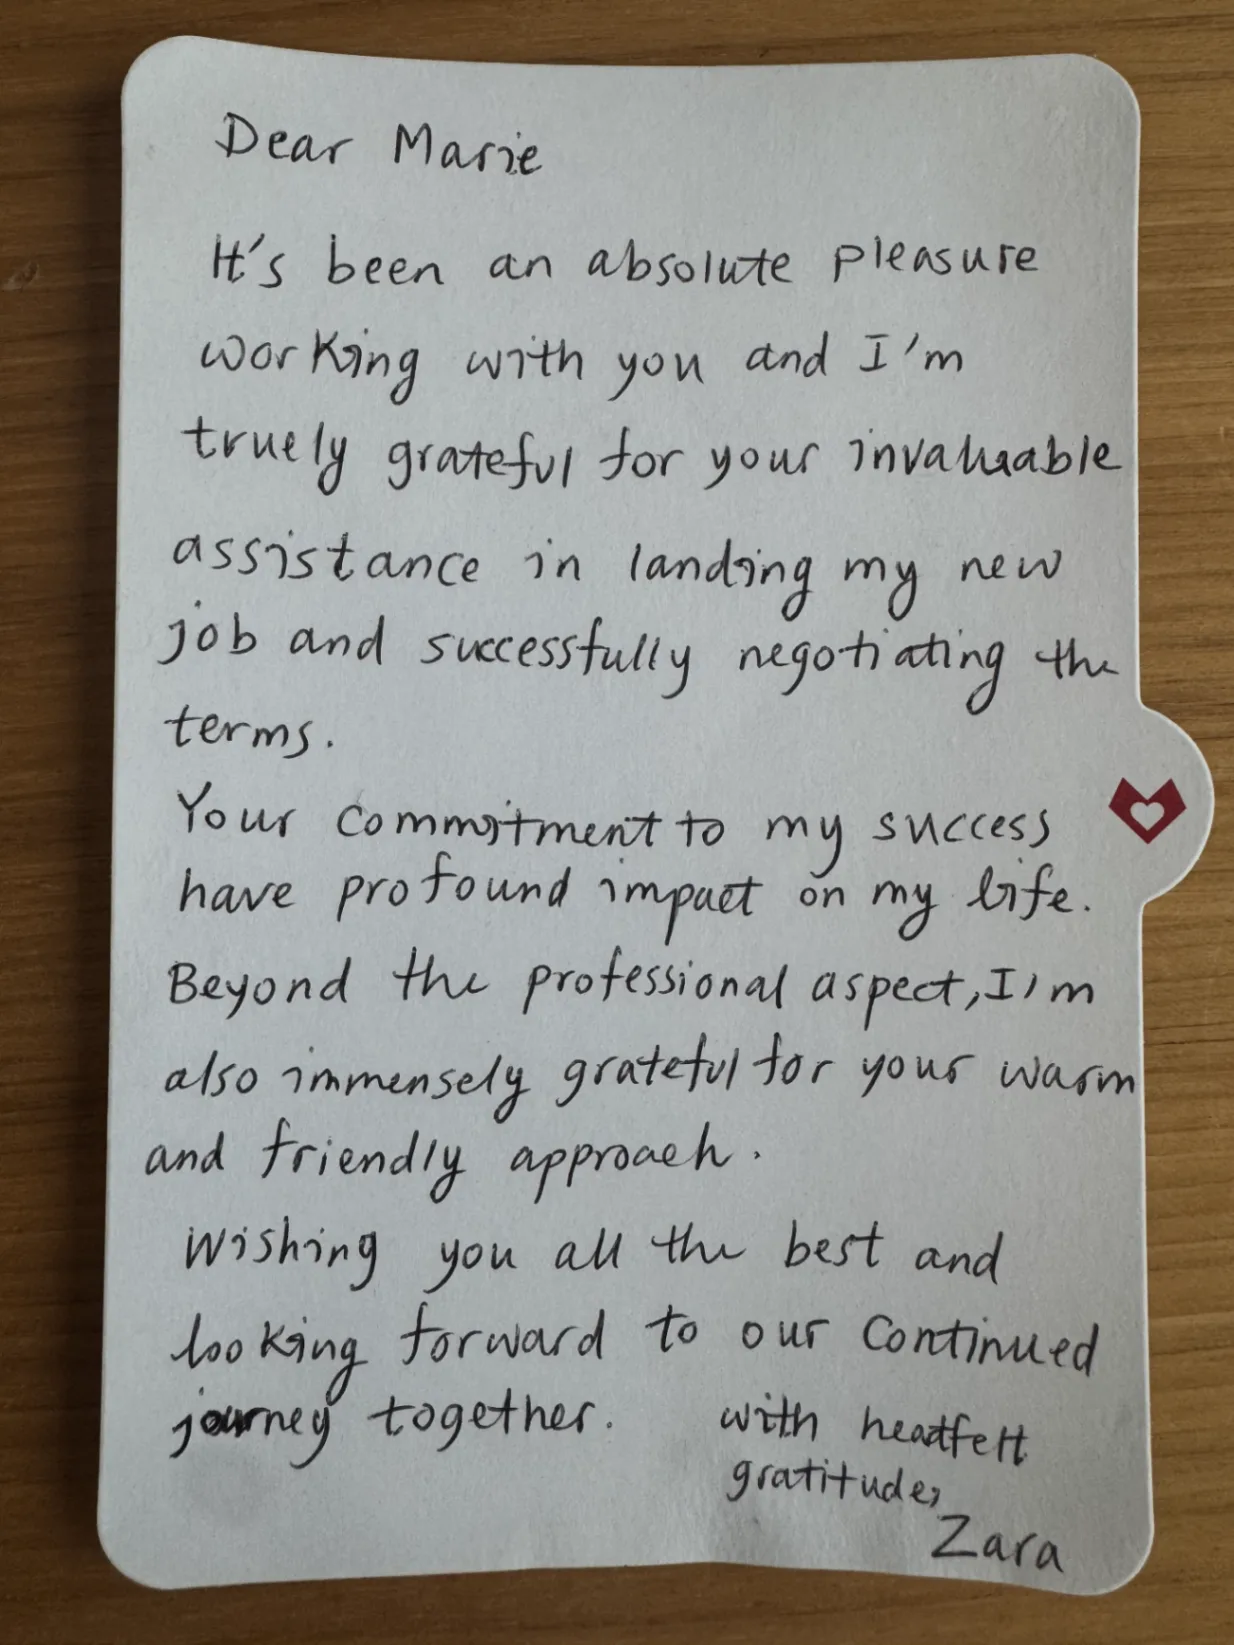 Dear Marie
It's been an absolute pleasure
working with you and I'm
truely grateful for your invaluable
assistance in landing my new
job and successfully negotiating the
terms.
Your commitment to my success
have profound impact on my life.
Beyond the professional aspect, I'm
also immensely grateful for your warm
and friendly approach.
Wishing you all the best and
looking forward to our continued
journey together.
with heatfelt
gratitude,
Zara